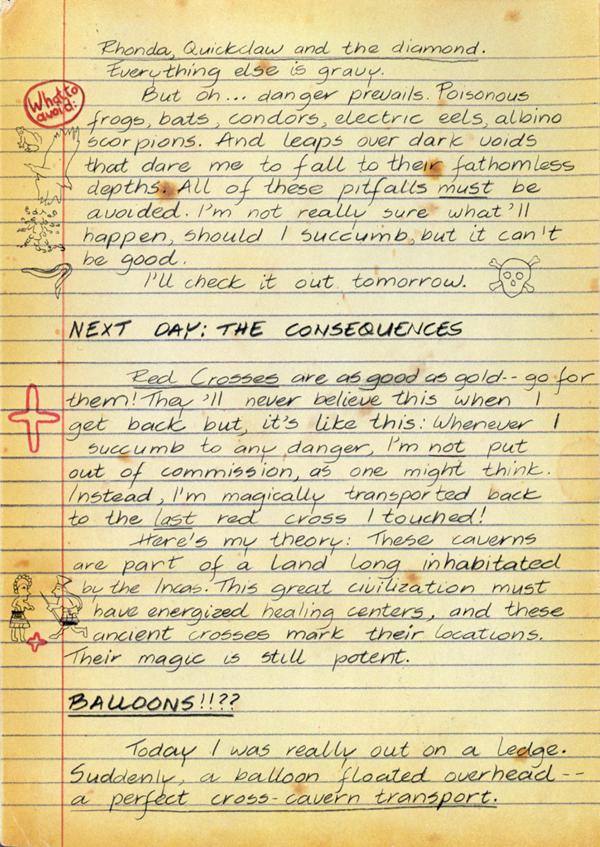 Rhonda, Quickclaw and the diamond.
Everything else is gravy.
What to
avoid:
But oh... danger prevails. Poisonous
frogs, bats, condors, electric eels, albino
scorpions. And leaps over dark voids
that dare me to fall to their fathomless
depths. All of these pitfalls must be
avoided. I'm not really sure what'll
happen, should I succumb, but it can't
be good.
I'll check it out tomorrow.
NEXT DAY: THE CONSEQUENCES
Red Crosses are as good as gold-- go for
them! They'll never believe this when I
get back but, it's like this: Whenever I
succumb to any danger, I'm not put
out of commission, as one might think.
Instead, I'm magically transported back
to the last red cross I touched!
Here's my theory: These caverns
are part of a land long inhabitated
by the Incas. This great civilization must
have energized healing centers, and these
ancient crosses mark their locations.
Their magic is still potent.
BALLOONS!!??
Today I was really out on a ledge.
Suddenly, a balloon floated overhead--
a perfect cross-cavern transport.